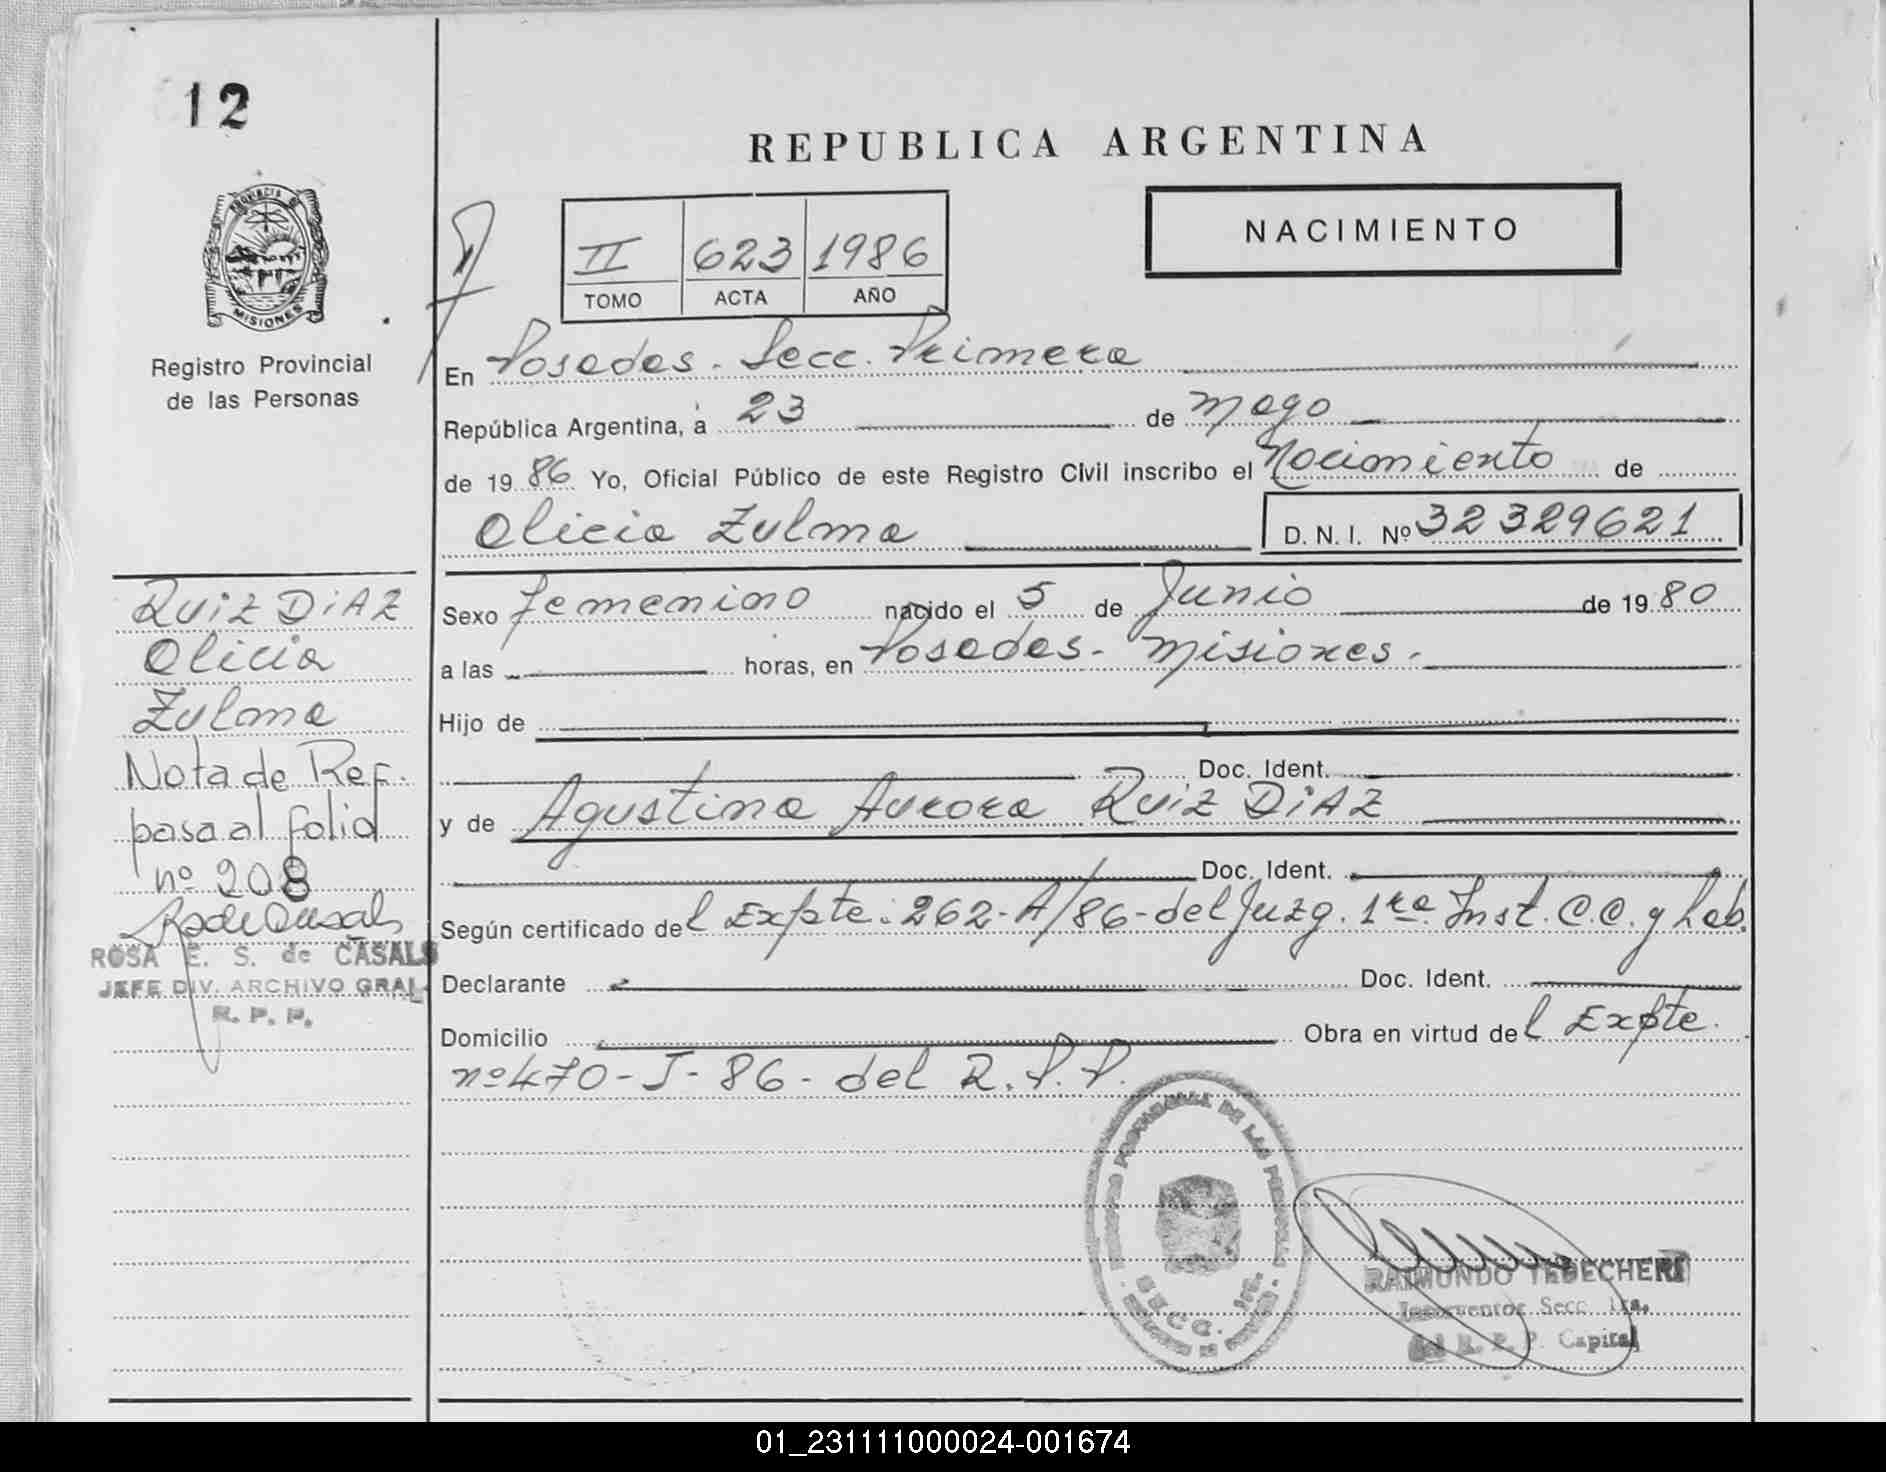 12
REPUBLICA ARGENTINA
NACIMIENTO
II 623 1986
TOMO ACTA AÑO
PROVINCIA DE
MISIONES
Registro Provincial
de las Personas
En Posadas. Secc. Primera
República Argentina, a 23 de mayo
de 1986 Yo, Oficial Público de este Registro Civil inscribo el Nacimiento de
Alicia Zulma D. N. I. Nº 32329621
RUIZ DIAZ
Alicia
Zulma
Nota de Ref.
pasa al folio
nº 208
ROSA E. S. de CASALS
JEFE DIV. ARCHIVO GRAL
R. P. P.
Sexo femenino nacido el 5 de Junio de 1980
a las horas, en Posadas - Misiones.
Hijo de
Doc. Ident.
y de Agustina Aurora RUIZ DIAZ
Doc. Ident.
Según certificado del Expte. 262-A/86-del Juzg. 1ra Inst. C.C. y Lab.
Declarante Doc. Ident.
Domicilio Obra en virtud del Expte.
nº 470-J-86- del R.P.P.
REGISTRO PROVINCIAL DE LAS PERSONAS
SECC. 1ra.
RAIMUNDO
Secc. 1ra.
R. P. P. Capital
01_231111000024-001674